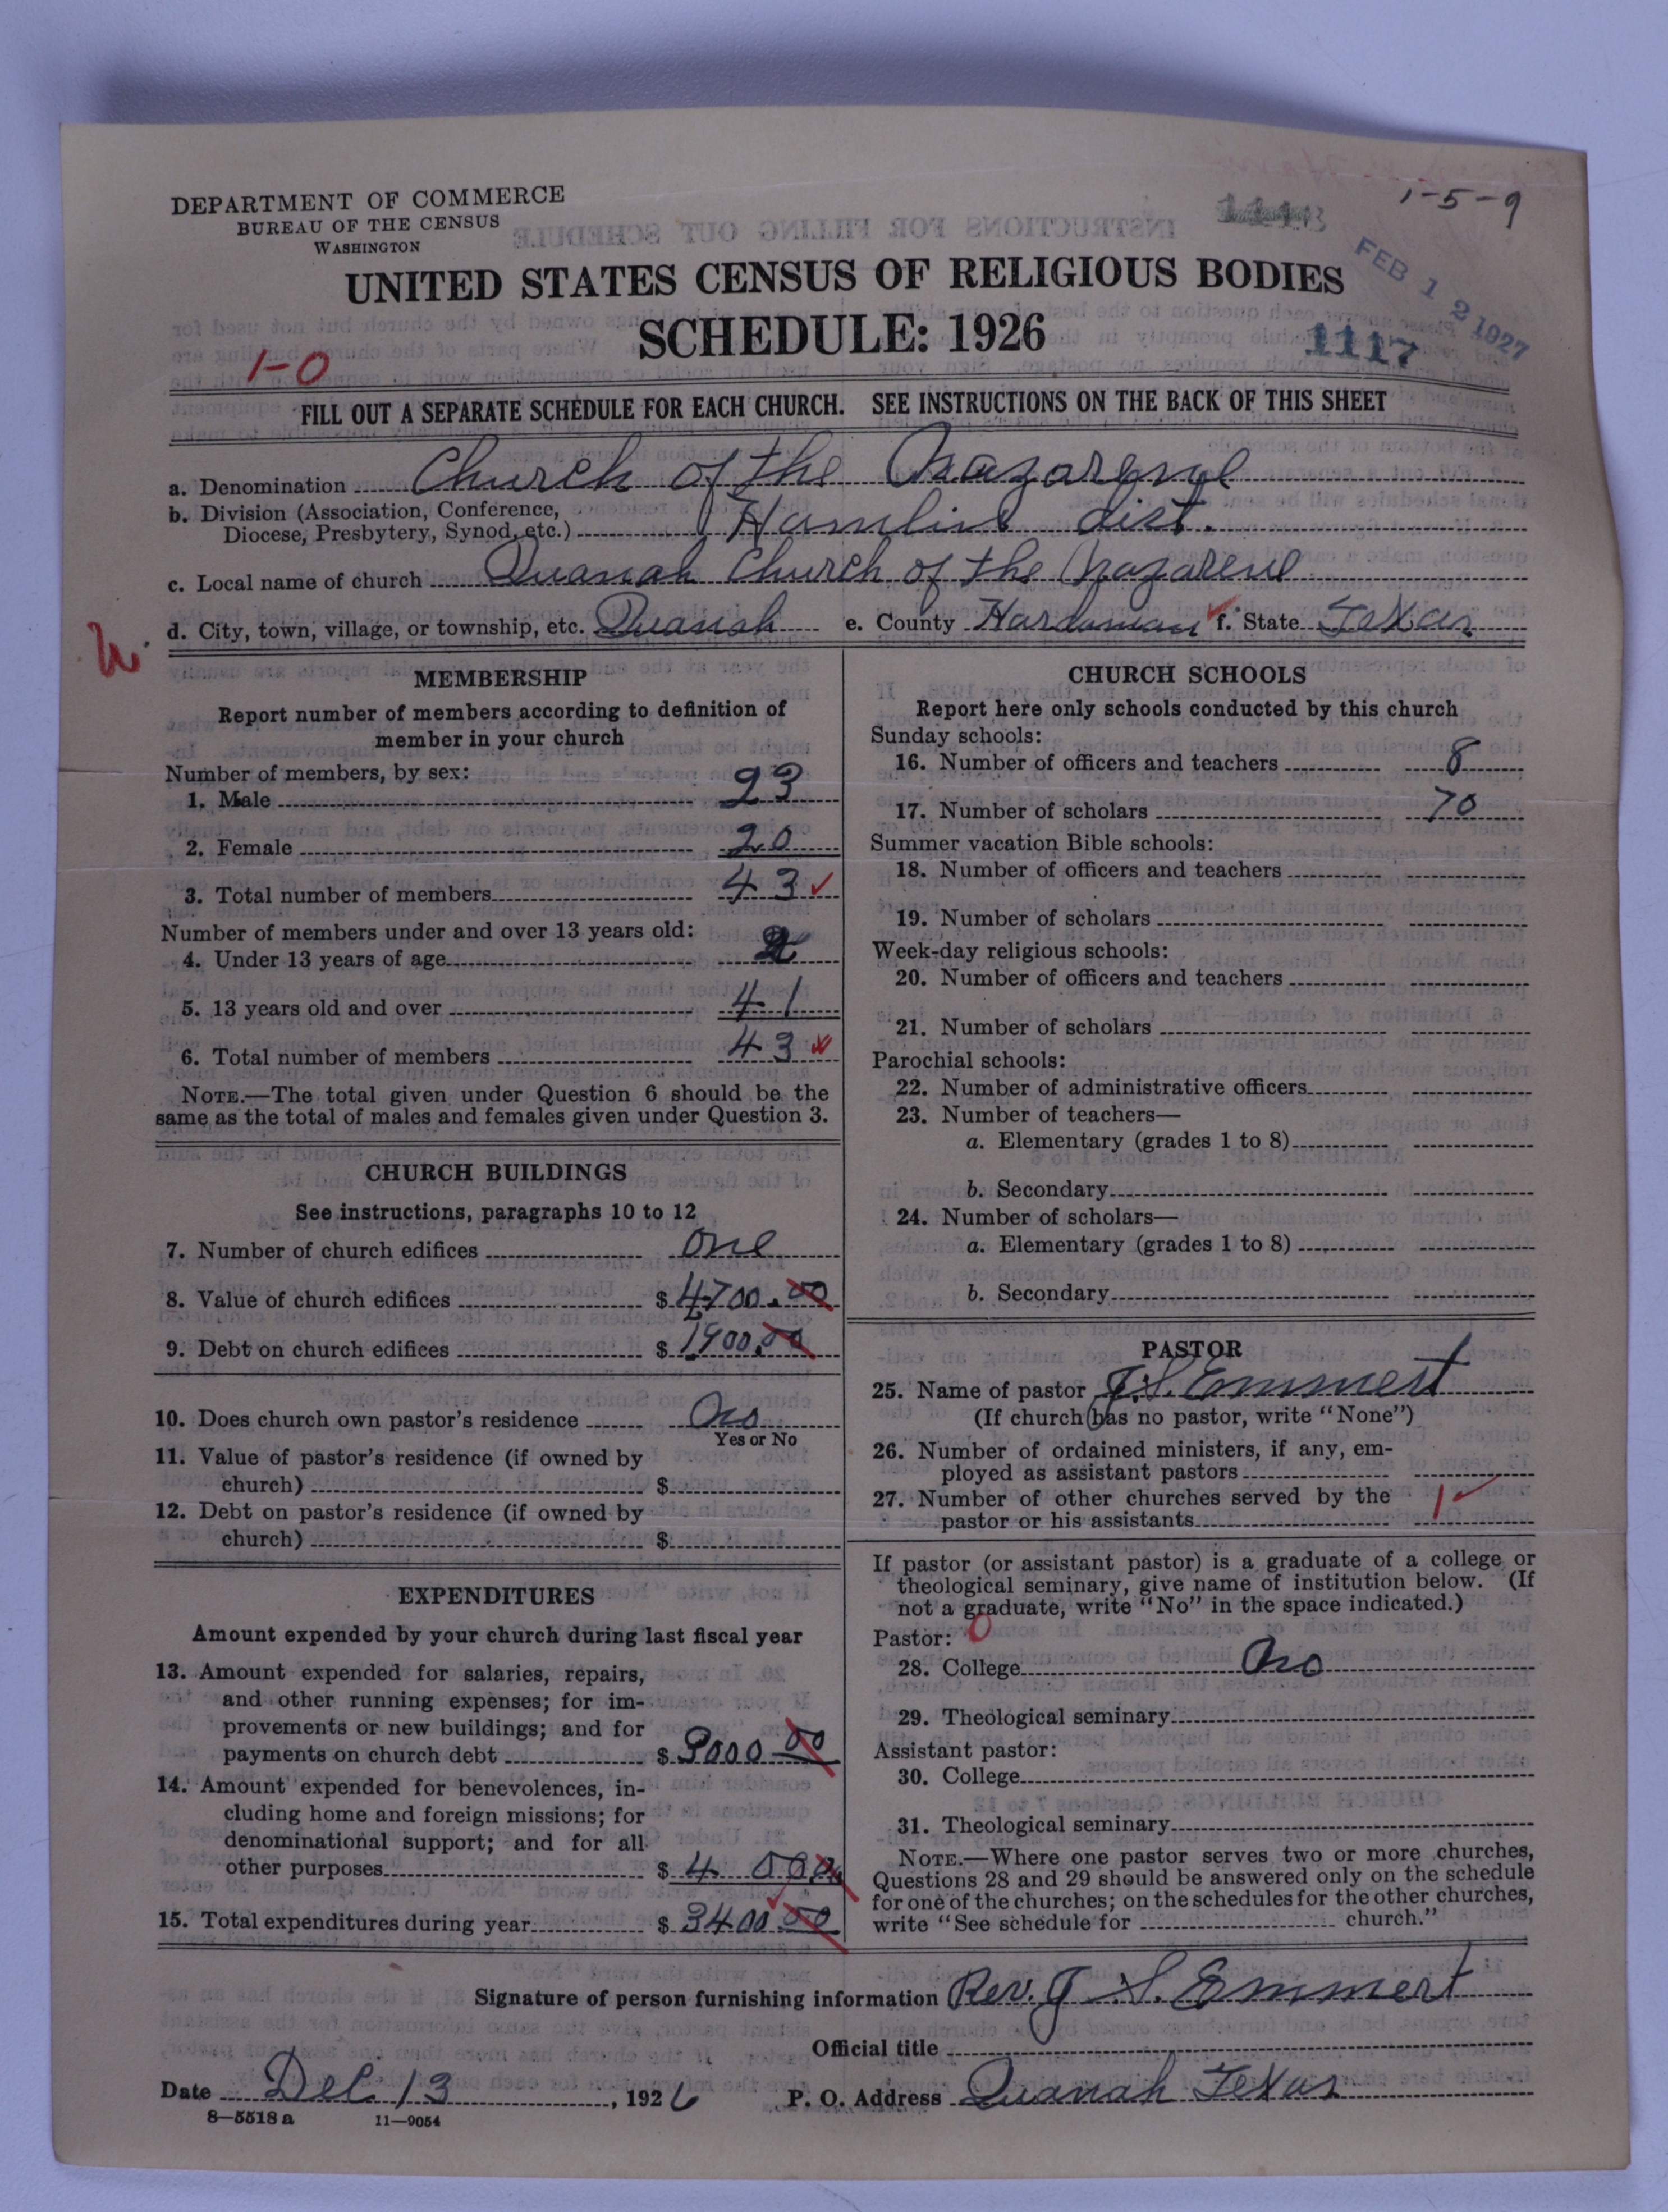 1-5-9
DEPARTMENT OF COMMERCE
BUREAU OF THE CENSUS
WASHINGTON
UNITED STATES CENSUS OF RELIGIOUS BODIES
FEB 12 1927
SCHEDULE: 1926
1117
1-0
FILL OUT A SEPARATE SCHEDULE FOR EACH CHURCH. SEE INSTRUCTIONS ON THE BACK OF THIS SHEET
a. Denomination Church of the Nazarene
b. Division (Association, Conference,
Diocese, Presbytery, Synod, etc.) Hamlin dist.
c. Local name of church Quanah Church of the Nazarene
d. City, town, village, or township, etc. Quanah e. County Hardeman f. State Texas
MEMBERSHIP
Report number of members according to definition of
member in your church
Number of members, by sex:
1. Male 23
2. Female 20
3. Total number of members 43
Number of members under and over 13 years old:
4. Under 13 years of age 2
5. 13 years old and over 41
6. Total number of members 43
NOTE.—The total given under Question 6 should be the
same as the total of males and females given under Question 3.
CHURCH BUILDINGS
See instructions, paragraphs 10 to 12
7. Number of church edifices one
8. Value of church edifices $ 4700.00
9. Debt on church edifices $ 1900.00
10. Does church own pastor's residence No
Yes or No
11. Value of pastor's residence (if owned by
church) $
12. Debt on pastor's residence (if owned by
church) $
EXPENDITURES
Amount expended by your church during last fiscal year
13. Amount expended for salaries, repairs,
and other running expenses; for im-
provements or new buildings; and for
payments on church debt $ 3000 00
14. Amount expended for benevolences, in-
cluding home and foreign missions; for
denominational support; and for all
other purposes $ 4 00.00
15. Total expenditures during year $ 3400.00
CHURCH SCHOOLS
Report here only schools conducted by this church
Sunday schools:
16. Number of officers and teachers 8
17. Number of scholars 70
Summer vacation Bible schools:
18. Number of officers and teachers
19. Number of scholars
Week-day religious schools:
20. Number of officers and teachers
21. Number of scholars
Parochial schools:
22. Number of administrative officers
23. Number of teachers—
a. Elementary (grades 1 to 8)
b. Secondary
24. Number of scholars—
a. Elementary (grades 1 to 8)
b. Secondary
PASTOR
25. Name of pastor J. S. Emmert
(If church has no pastor, write "None")
26. Number of ordained ministers, if any, em-
ployed as assistant pastors
27. Number of other churches served by the 1
pastor or his assistants
If pastor (or assistant pastor) is a graduate of a college or
theological seminary, give name of institution below. (If
not a graduate, write "No" in the space indicated.)
Pastor: 0
28. College No
29. Theological seminary
Assistant pastor:
30. College
31. Theological seminary
NOTE.—Where one pastor serves two or more churches,
Questions 28 and 29 should be answered only on the schedule
for one of the churches; on the schedules for the other churches,
write "See schedule for church."
Signature of person furnishing information Rev. J. S. Emmert
Official title
Date Dec. 13, 1926 P. O. Address Quanah Texas
8—5518 a 11—9054